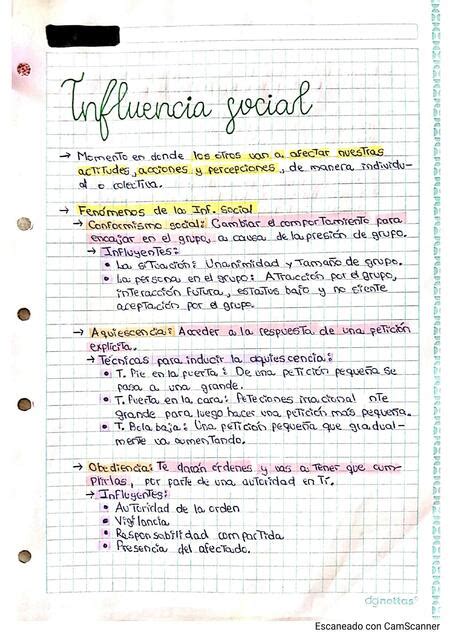 Influencia social
→ Momento en donde los otros van a afectar nuestras
actitudes, acciones y percepciones, de manera individu-
al o colectiva.
→ Fenómenos de la Inf. Social
→ Conformismo social: Cambiar el comportamiento para
encajar en el grupo, a causa de la presión de grupo.
→ Influyentes:
• La situación: Unanimidad y Tamaño de grupo.
• La persona en el grupo: Atracción por el grupo,
interacción futura, estatus bajo y no siente
aceptación por el grupo.
→ Aquiescencia: Acceder a la respuesta de una petición
explícita.
→ Técnicas para inducir la aquiescencia:
• T. Pie en la puerta: De una petición pequeña se
pasa a una grande.
• T. Puerta en la cara: Peticiones irracional nte
grande para luego hacer una petición más pequeña.
• T. Bola baja: Una petición pequeña que gradual-
mente va aumentando.
→ Obediencia: Te darán órdenes y vas a tener que cum-
plirlas, por parte de una autoridad en Ti.
→ Influyentes:
• Autoridad de la orden
• Vigilancia
• Responsabilidad compartida
• Presencia del afectado.
dgnottas
Escaneado con CamScanner